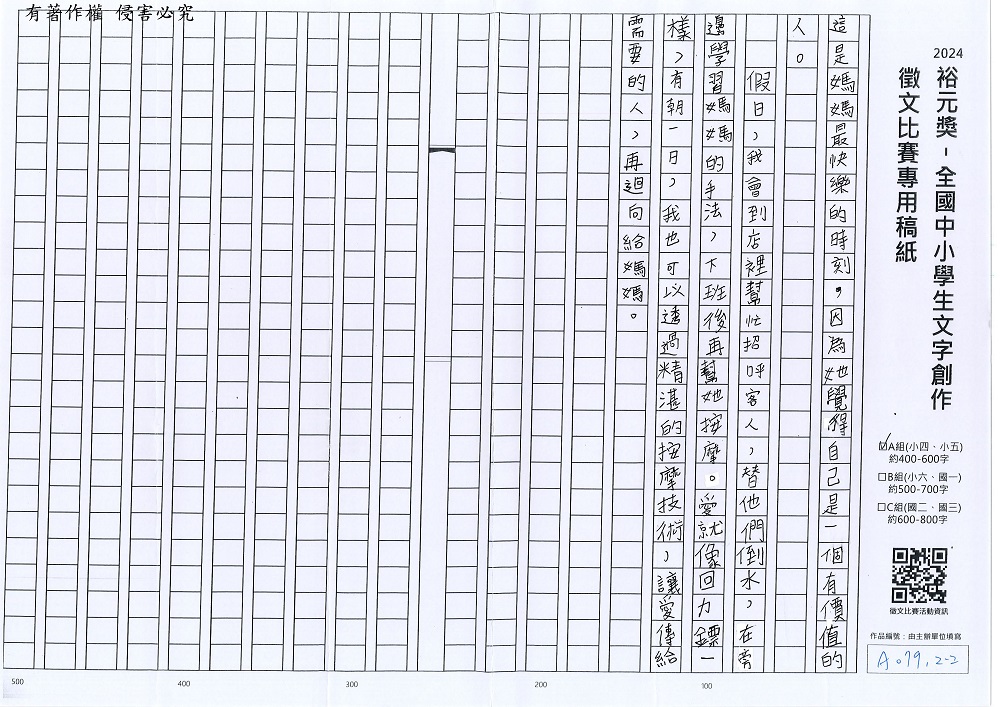 有著作權 侵害必究
2024
裕元獎-全國中小學生文字創作
徵文比賽專用稿紙
☑A組(小四、小五)
約400-600字
□B組(小六、國一)
約500-700字
□C組(國二、國三)
約600-800字
徵文比賽活動資訊
作品編號：由主辦單位填寫
A079.2-2
這是媽媽最快樂的時刻，因為她覺得自己是一個有價值的
人。
假日，我會到店裡幫忙招呼客人，替他們倒水，在旁
邊學習媽媽的手法，下班後再幫她按摩。愛就像回力鏢一
樣，有朝一日，我也可以透過精湛的按摩技術，讓愛傳給
需要的人，再迴向給媽媽。
100
200
300
400
500